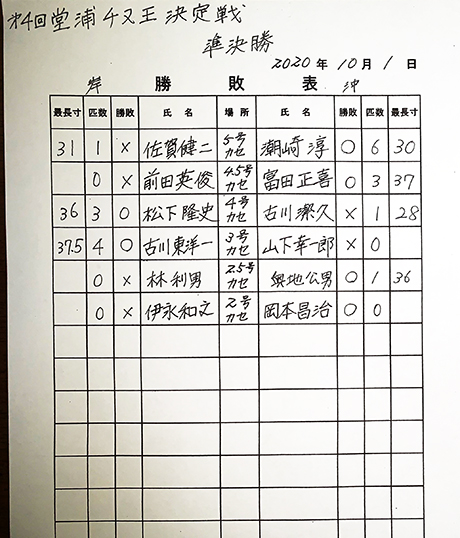 第4回堂浦チヌ王決定戦
準決勝
2020年10月1日
岸 勝敗表 沖
最長寸 匹数 勝敗 氏名 場所 氏名 勝敗 匹数 最長寸
31 1 × 佐賀健二 5号カセ 潮崎淳 ○ 6 30
0 × 前田英俊 4.5号カセ 富田正喜 ○ 3 37
36 3 ○ 松下隆史 4号カセ 古川 久 × 1 28
37.5 4 ○ 古川東洋一 3号カセ 山下幸一郎 × 0
0 × 林利男 2.5号カセ 奥地公男 ○ 1 36
0 × 伊永和文 2号カセ 岡本昌治 ○ 0